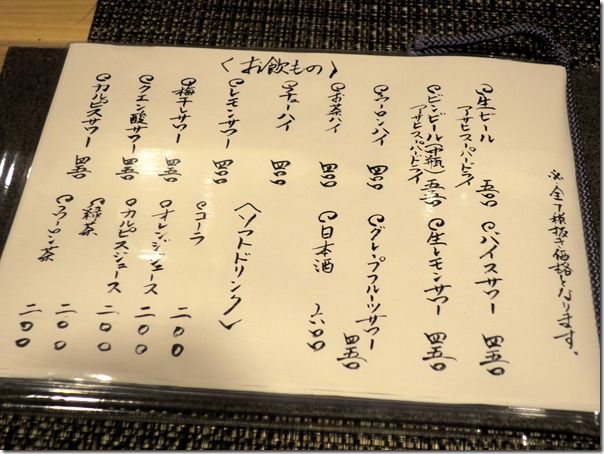 〈お飲もの〉
※全て税抜き価格となります。
生ビール 五〇〇
アサヒスーパードライ
ビンビール(中瓶) 五五〇
アサヒスーパードライ
ウーロンハイ 四〇〇
お茶ハイ 四〇〇
チューハイ 四〇〇
レモンサワー 四〇〇
梅干しサワー 四五〇
クエン酸サワー 四五〇
カルピスサワー 四五〇
バイスサワー 四五〇
生レモンサワー 四五〇
グレープフルーツサワー 四五〇
日本酒 六〇〇
〈ソフトドリンク〉
コーラ 二〇〇
オレンジジュース 二〇〇
カルピスジュース 二〇〇
緑茶 二〇〇
ウーロン茶 二〇〇